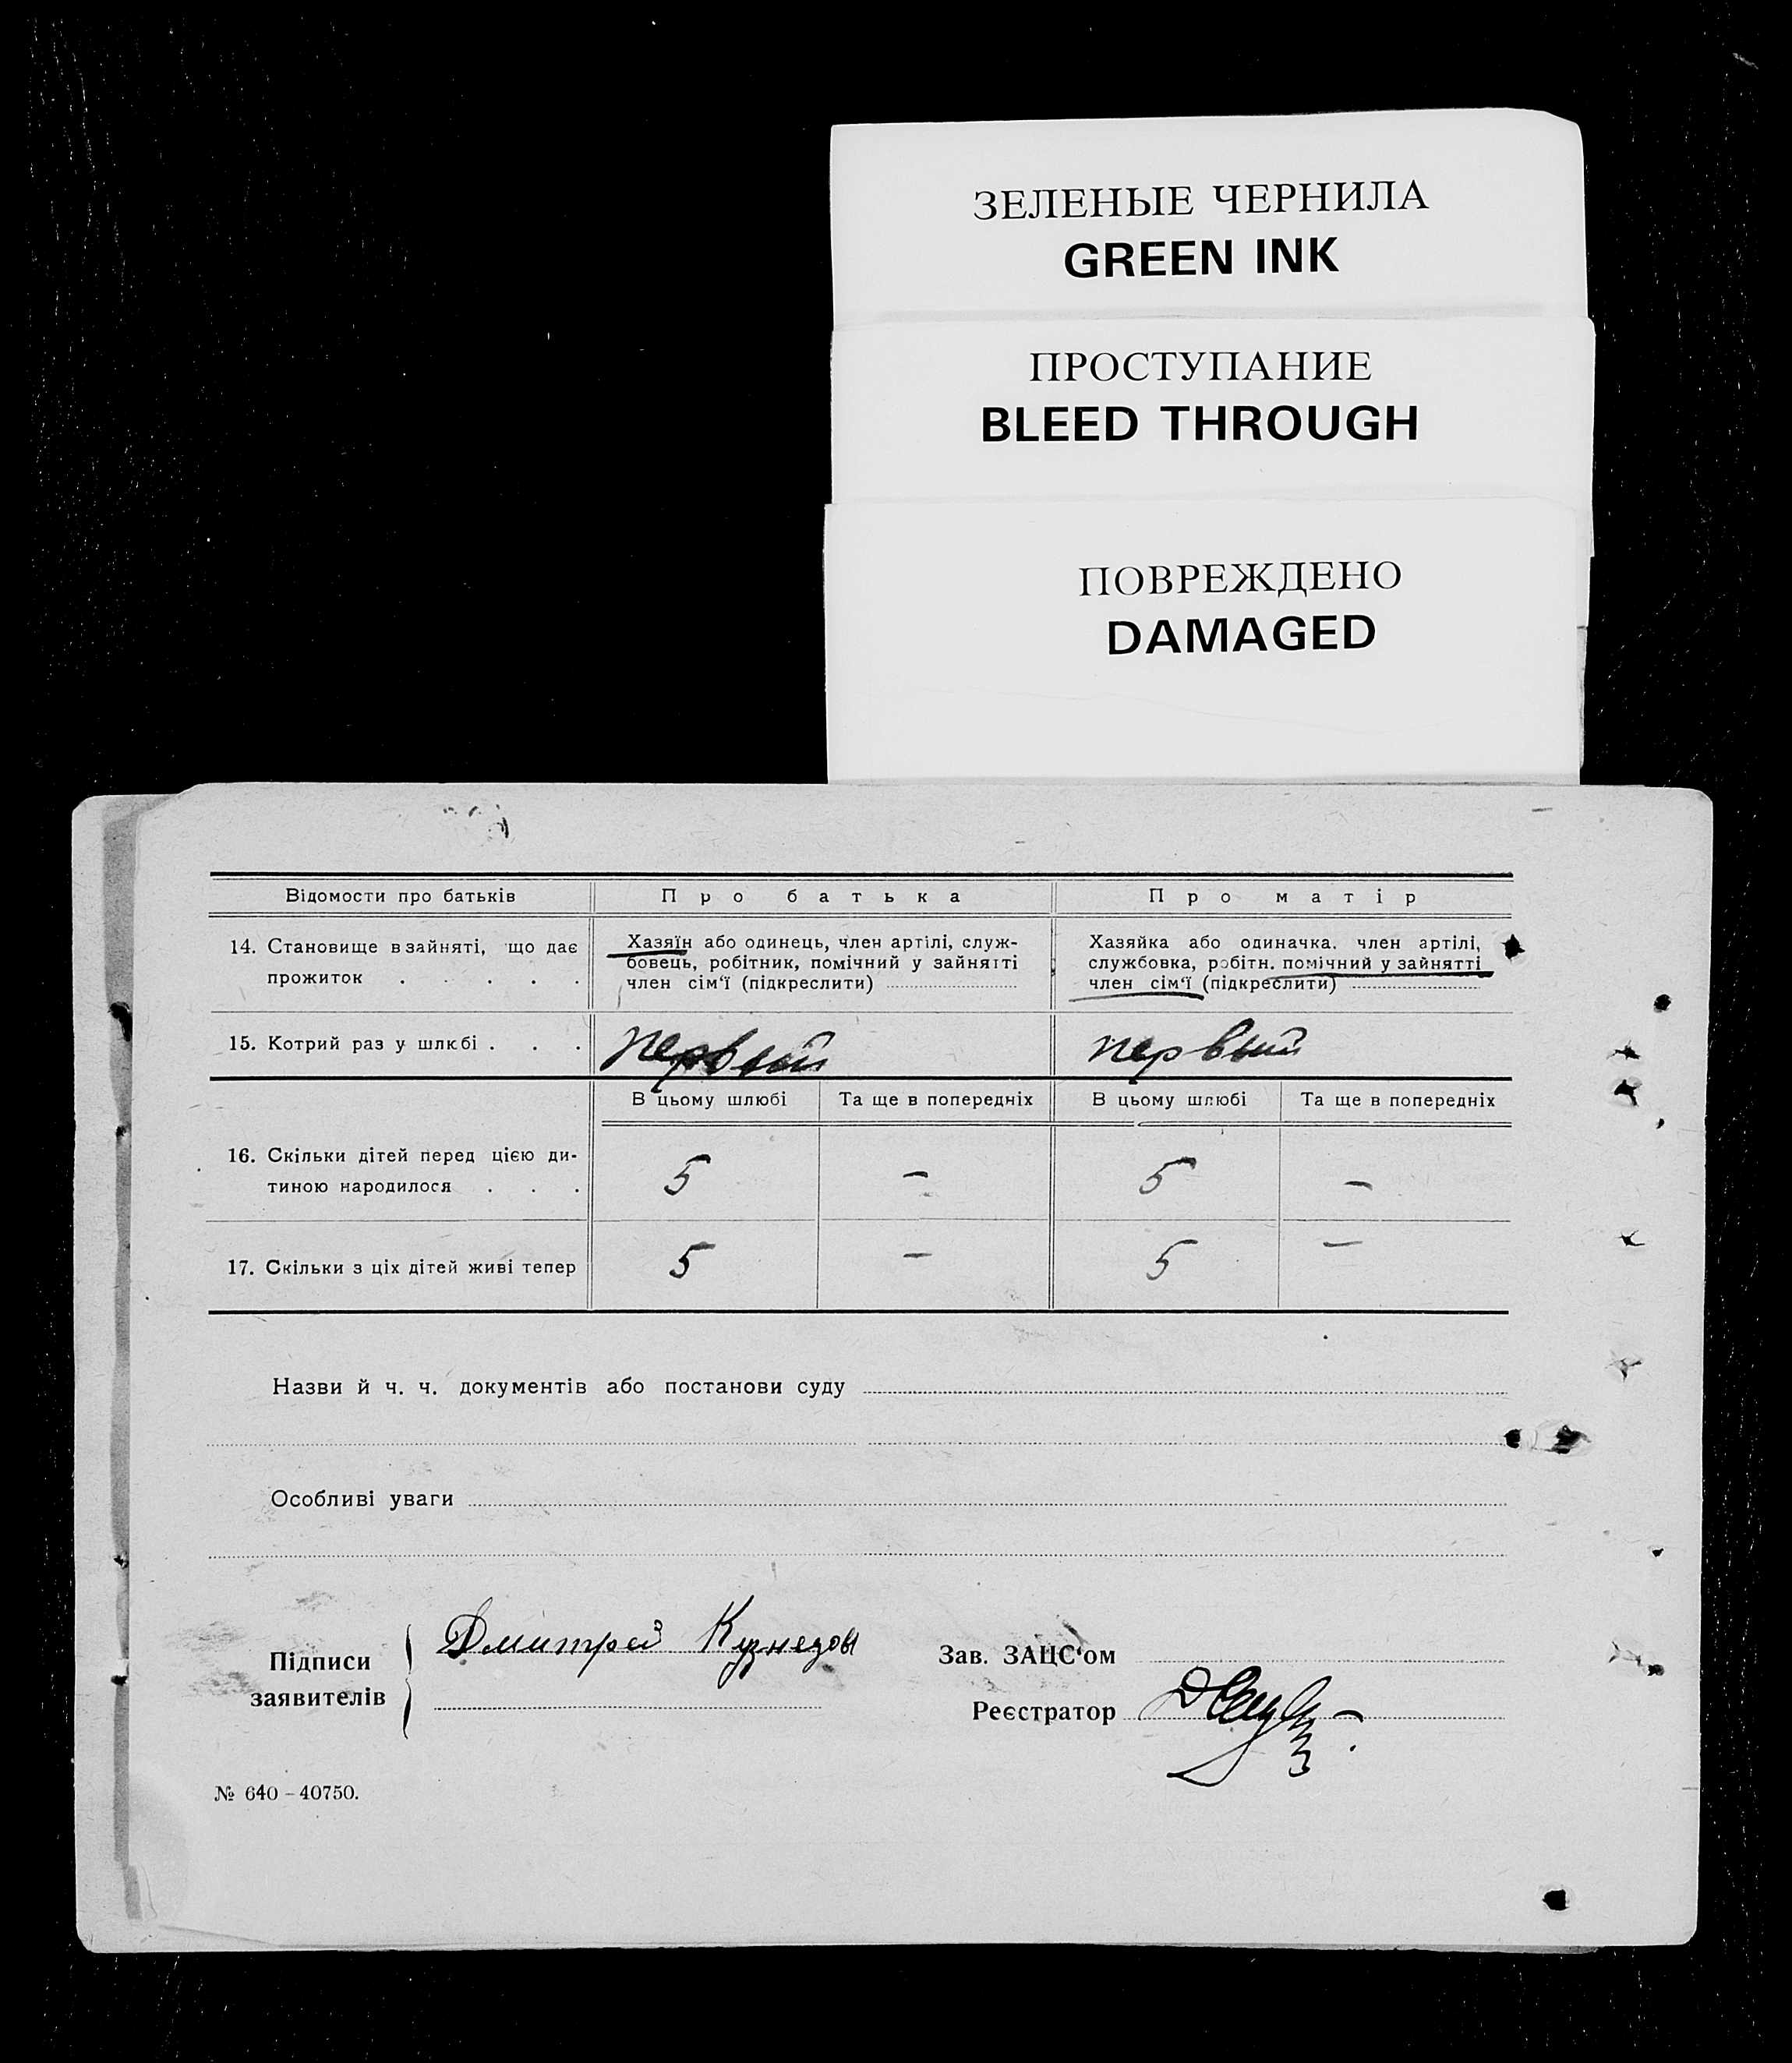 ЗЕЛЕНЫЕ ЧЕРНИЛА
GREEN INK
ПРОСТУПАНИЕ
BLEED THROUGH
ПОВРЕЖДЕНО
DAMAGED
Відомости про батьків Про батька Про матір
14. Становище в зайняті, що дає прожиток . . . . .
Хазяїн або одинець, член артілі, служ-
бовець, робітник, помічний у зайнятті
член сім'ї (підкреслити)
Хазяйка або одиначка. член артілі,
службовка, робітн. помічний у зайнятті
член сім'ї (підкреслити)
15. Котрий раз у шлюбі . . . первый первый
В цьому шлюбі Та ще в попередніх В цьому шлюбі Та ще в попередніх
16. Скільки дітей перед цією ди-
тиною народилося . . . 5 – 5 –
17. Скільки з ціх дітей живі тепер 5 – 5 –
Назви й ч. ч. документів або постанови суду
Особливі уваги
Підписи
заявителів
Дмитрей Кузнецов
Зав. ЗАЦС'ом
Реєстратор
№ 640 – 40750.